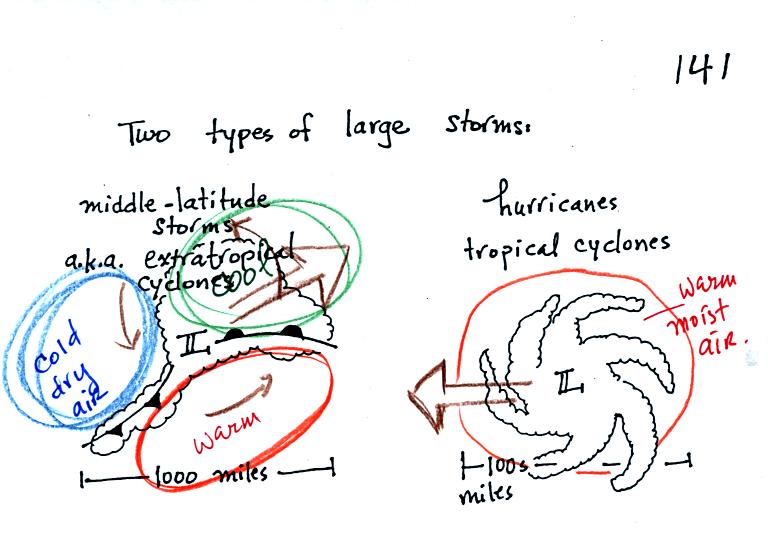 141
Two types of large storms:
middle-latitude
storms
a.k.a. extratropical
cyclones
cool
cold
dry
air
L
warm
1000 miles
hurricanes
tropical cyclones
warm
moist
air.
L
100s
miles